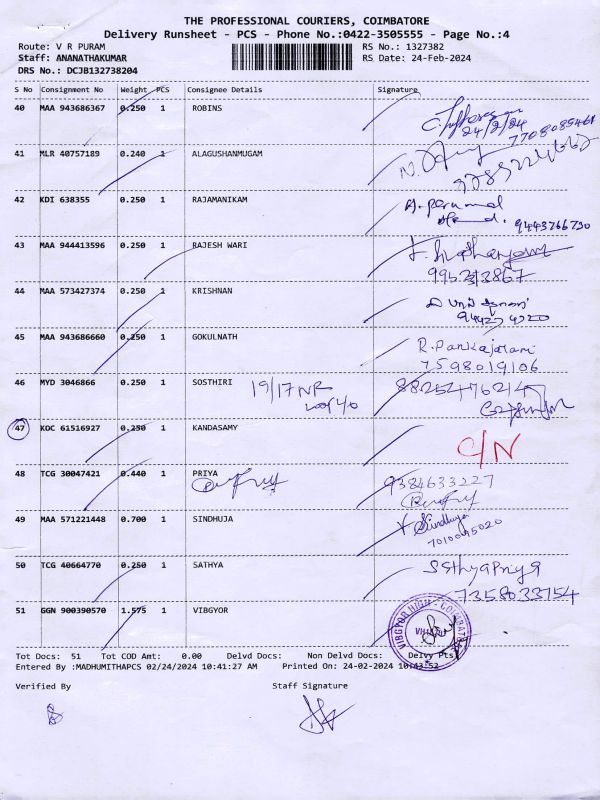 THE PROFESSIONAL COURIERS, COIMBATORE
Delivery Runsheet - PCS - Phone No.:0422-3505555 - Page No.:4
Route: V R PURAM RS No.: 1327382
Staff: ANANATHAKUMAR RS Date: 24-Feb-2024
DRS No.: DCJB132738204
S No Consignment No Weight PCS Consignee Details Signature
40 MAA 943686367 0.250 1 ROBINS
24/2/24
7708085461
41 MLR 40757189 0.240 1 ALAGUSHANMUGAM
42 KDI 638355 0.250 1 RAJAMANIKAM
A. Perumal
9443766730
43 MAA 944413596 0.250 1 RAJESH WARI
44 MAA 573427374 0.250 1 KRISHNAN
45 MAA 943686660 0.250 1 GOKULNATH
R. Pankajatam
7598019106
46 MYD 3046866 0.250 1 SOSTHIRI 19/17 NR
47 KOC 61516927 0.250 1 KANDASAMY C/N
48 TCG 30047421 0.440 1 PRIYA 9384633227
49 MAA 571221448 0.700 1 SINDHUJA Sindhuja
7010095020
50 TCG 40664770 0.250 1 SATHYA SSthyapriya
7358033754
51 GGN 900390570 1.575 1 VIBGYOR
VIBGYOR HIGH - COIMBATORE
Tot Docs: 51 Tot COD Amt: 0.00 Delvd Docs: Non Delvd Docs: Delvy Pts
Entered By :MADHUMITHAPCS 02/24/2024 10:41:27 AM Printed On: 24-02-2024 10:43:52
Verified By Staff Signature